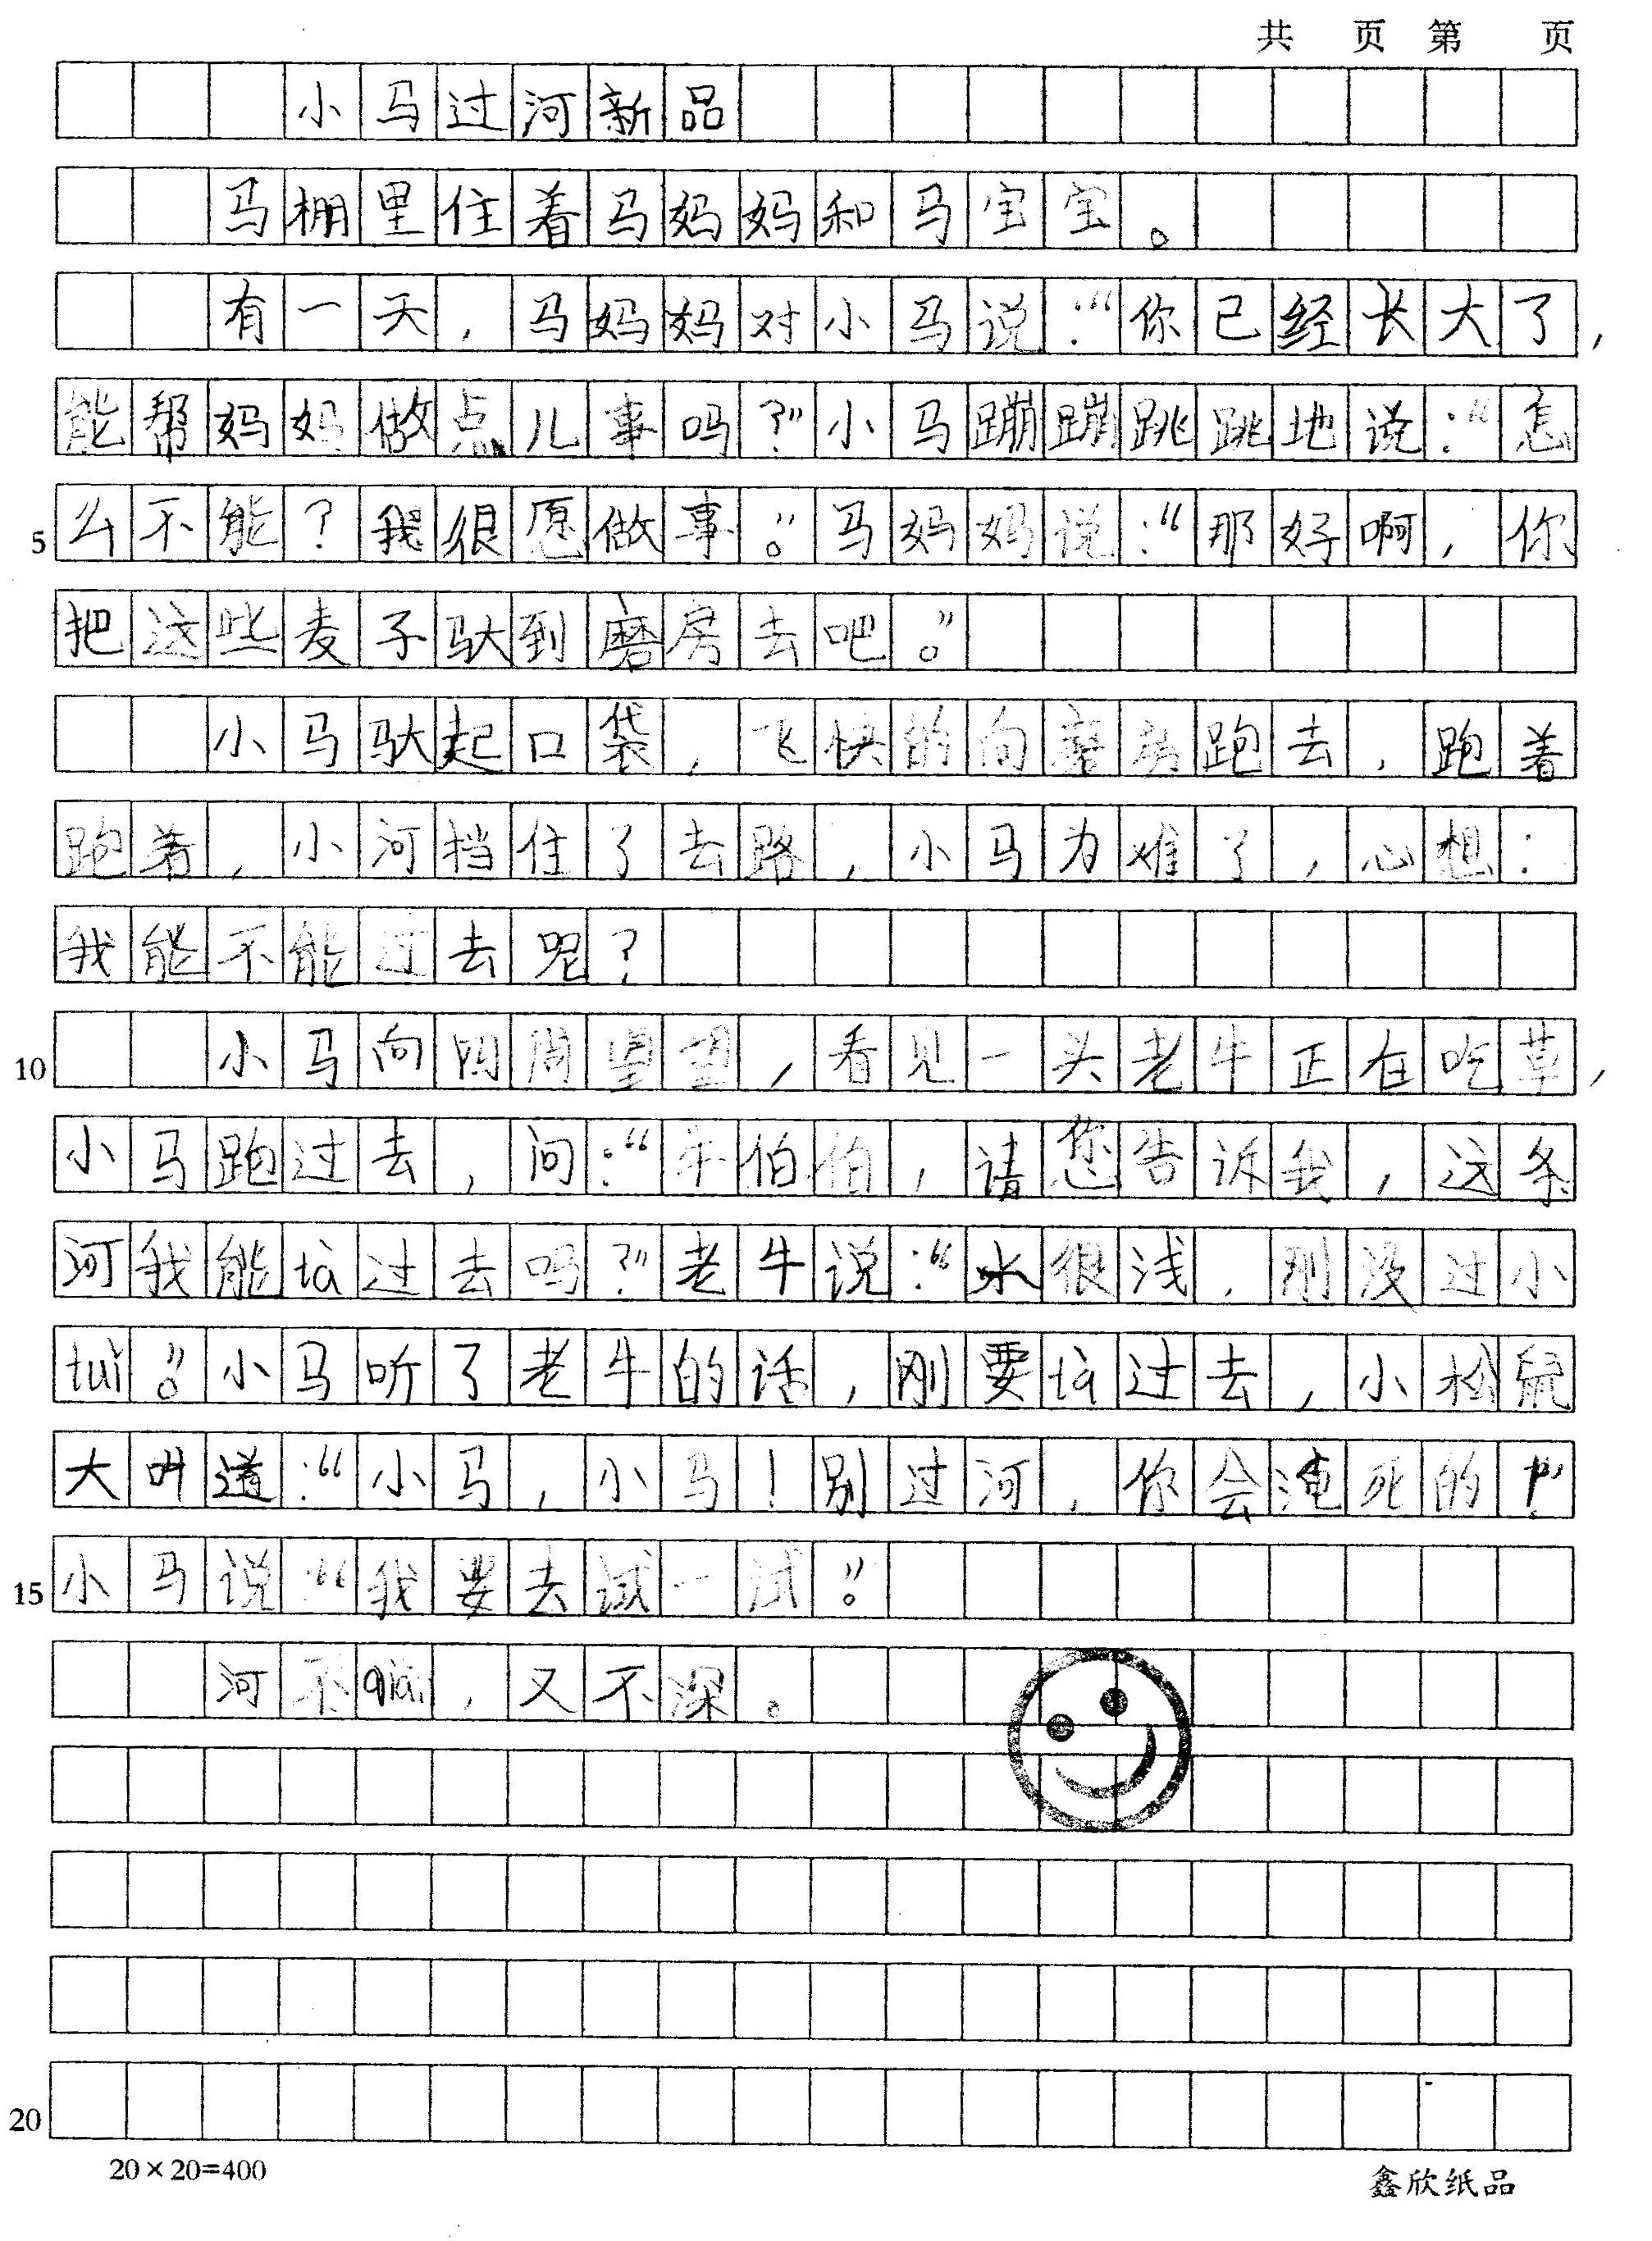 共 页 第 页
小马过河新品
马棚里住着马妈妈和马宝宝。
有一天，马妈妈对小马说：“你已经长大了，
能帮妈妈做点儿事吗？”小马蹦蹦跳跳地说：“怎
5 么不能？我很愿做事。”马妈妈说：“那好啊，你
把这些麦子驮到磨房去吧。”
小马驮起口袋，飞快的向磨房跑去，跑着
跑着，小河挡住了去路，小马为难了，心想：
我能不能过去呢？
10 小马向四周望望，看见一头老牛正在吃草，
小马跑过去，问：“牛伯伯，请您告诉我，这条
河我能tā过去吗？”老牛说：“水很浅，刚没过小
tuǐ。”小马听了老牛的话，刚要tā过去，小松鼠
大叫道：“小马，小马！别过河，你会淹死的！”
15 小马说：“我要去试一试。”
河不qiǎn，又不深。
20
20×20=400
鑫欣纸品